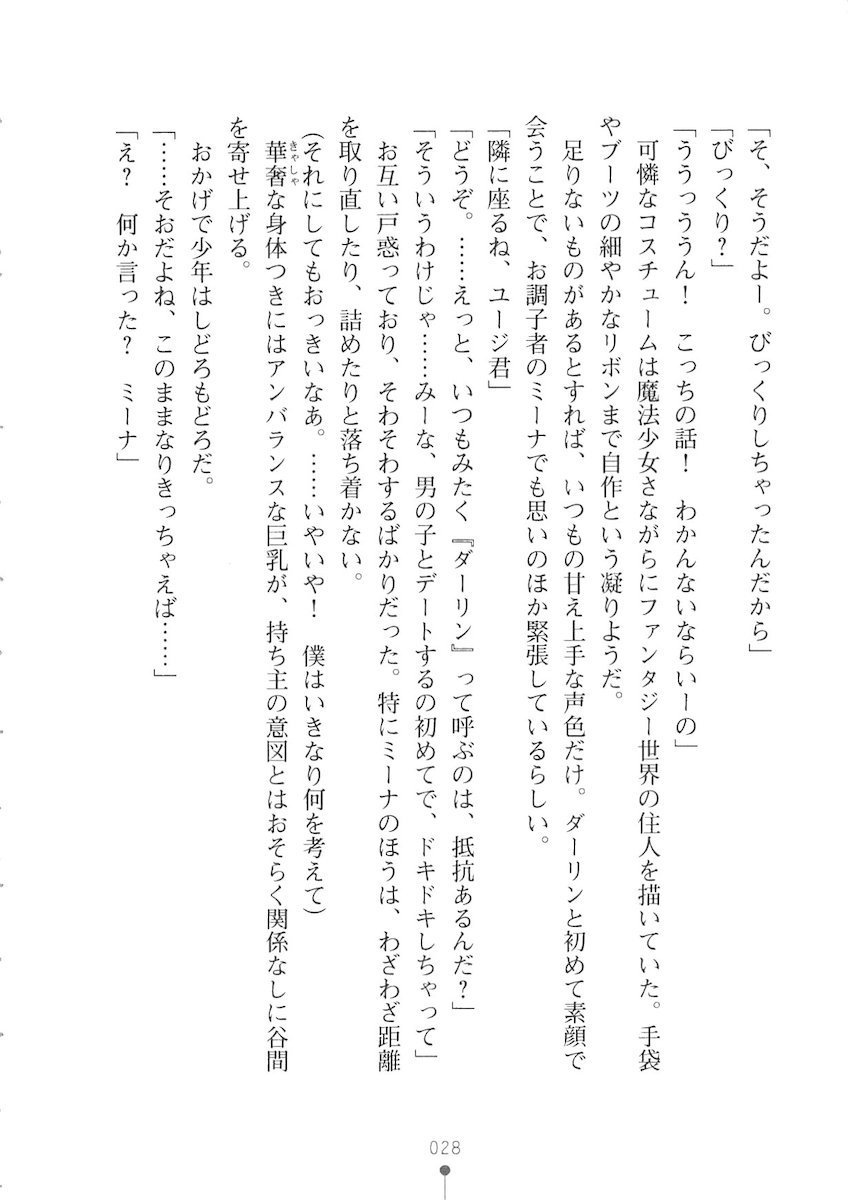 「そ、そうだよー。びっくりしちゃったんだから」
「びっくり?」
「ううっううん!　こっちの話!　わかんないならいーの」
　可憐なコスチュームは魔法少女さながらにファンタジー世界の住人を描いていた。手袋
やブーツの細やかなリボンまで自作という凝りようだ。
　足りないものがあるとすれば、いつもの甘え上手な声色だけ。ダーリンと初めて素顔で
会うことで、お調子者のミーナでも思いのほか緊張しているらしい。
「隣に座るね、ユージ君」
「どうぞ。……えっと、いつもみたく『ダーリン』って呼ぶのは、抵抗あるんだ?」
「そういうわけじゃ……みーな、男の子とデートするの初めてで、ドキドキしちゃって」
　お互い戸惑っており、そわそわするばかりだった。特にミーナのほうは、わざわざ距離
を取り直したり、詰めたりと落ち着かない。
（それにしてもおっきいなぁ。……いやいや!　僕はいきなり何を考えて）
　華奢な身体つきにはアンバランスな巨乳が、持ち主の意図とはおそらく関係なしに谷間
きゃしゃ
を寄せ上げる。
　おかげで少年はしどろもどろだ。
「……そおだよね、このままなりきっちゃえば……」
「え?　何か言った?　ミーナ」
028